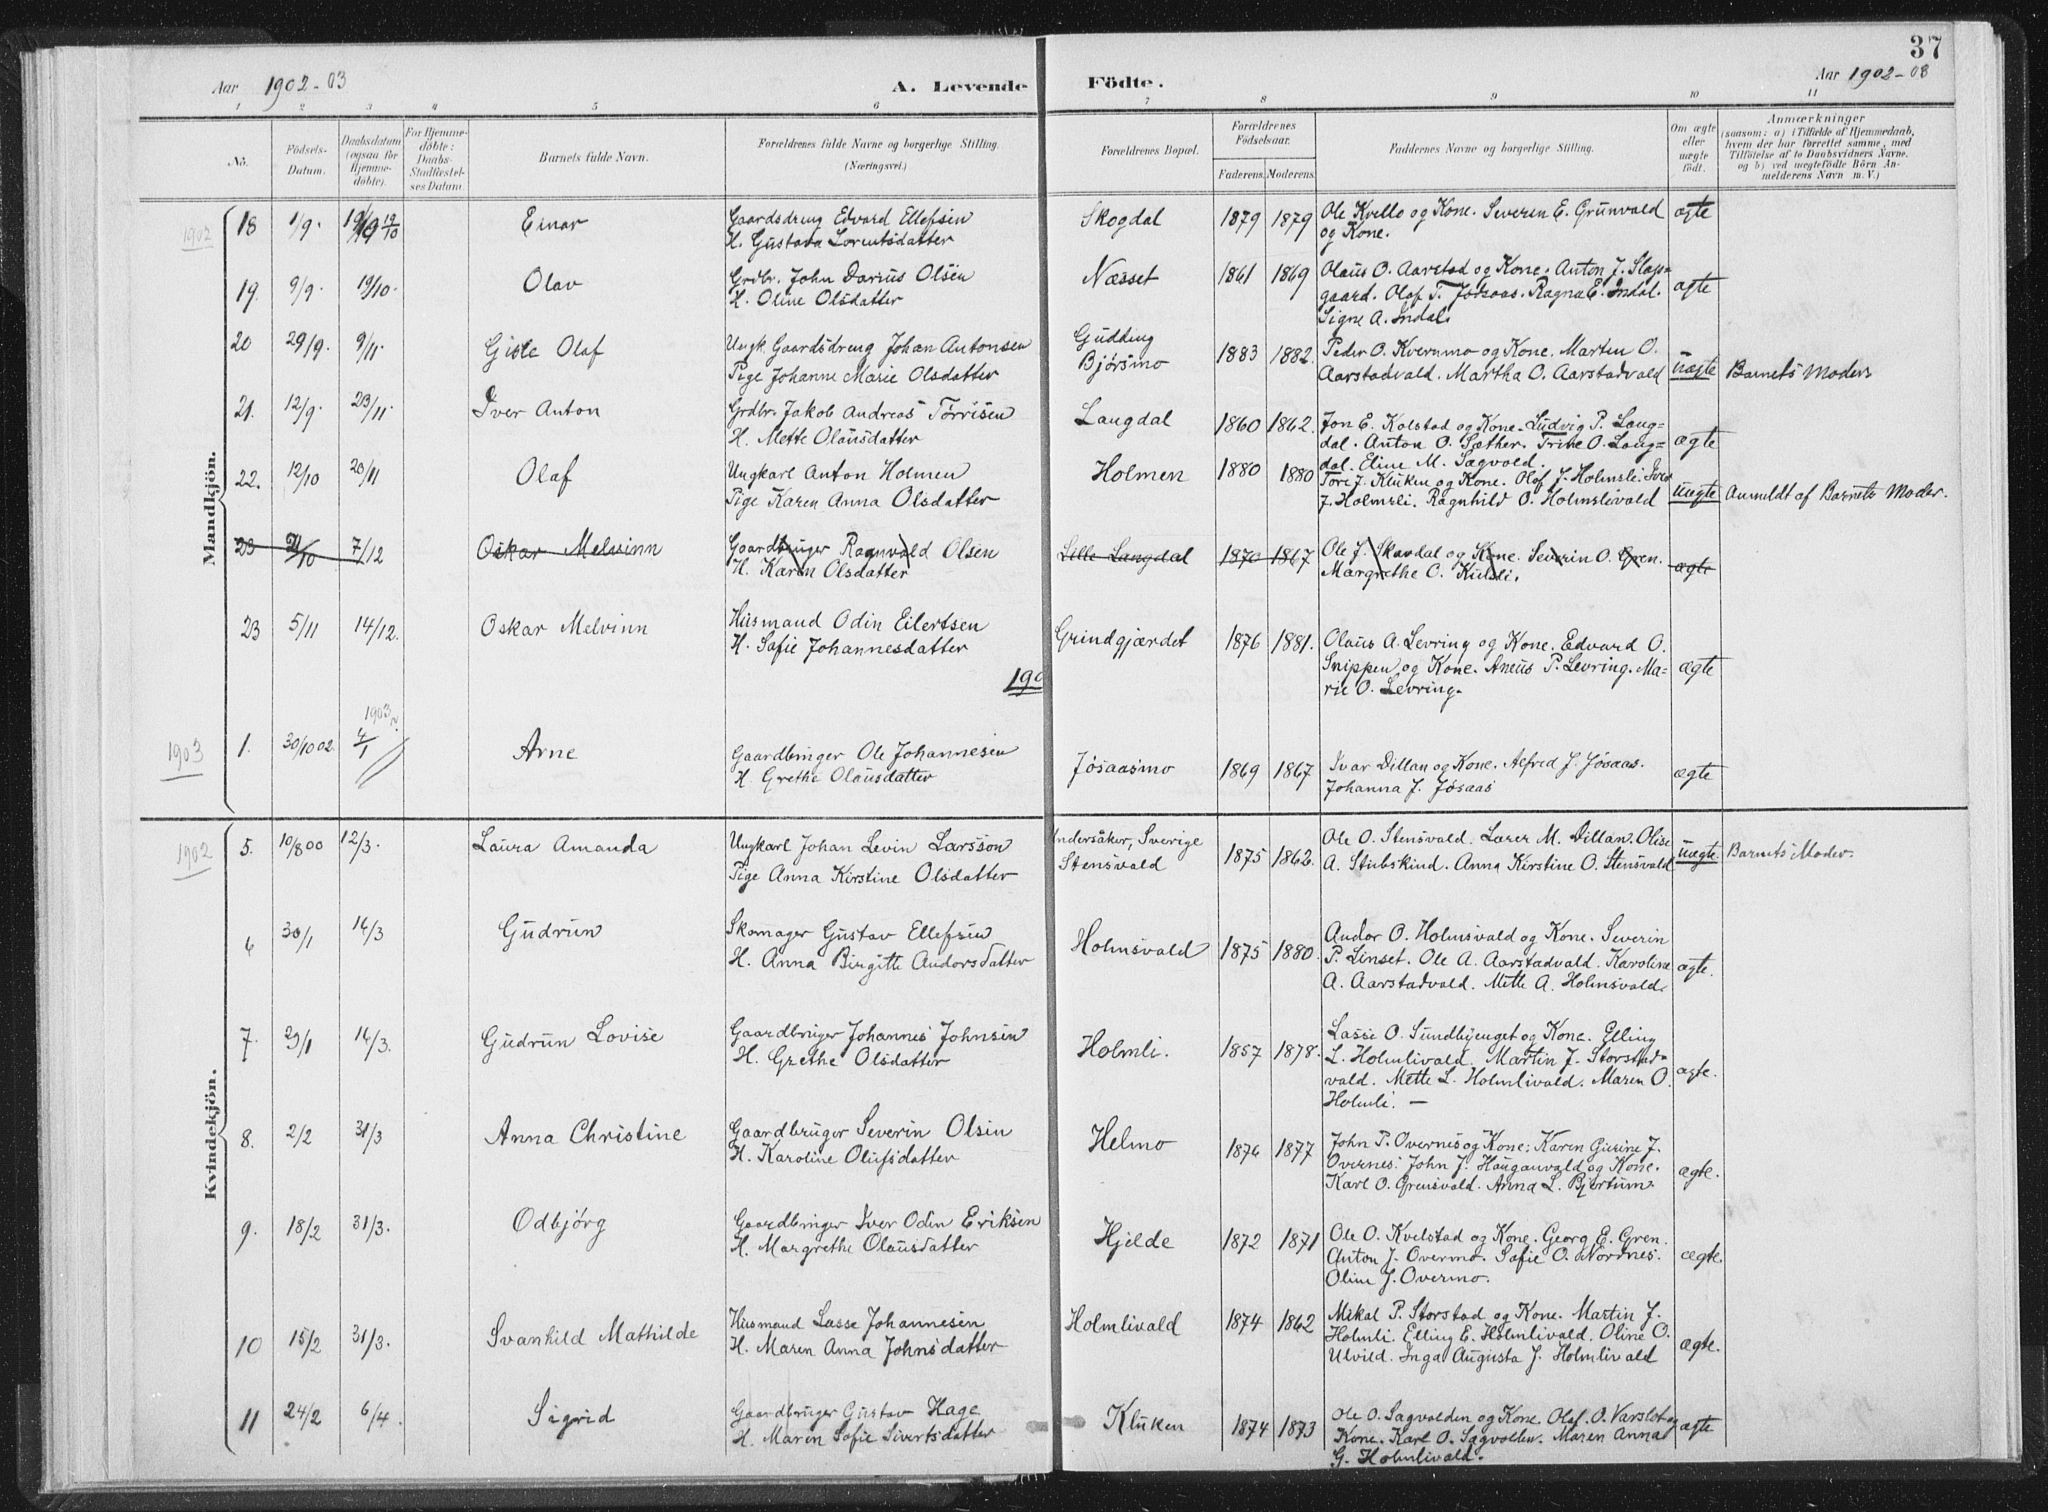 37
Aar 1902-03
A. Levende Födte.
Aar 1902-03
1 2 3 4 5 6 7 8 9 10 11
No.
Födsels-Datum.
Daabsdatum (ogsaa for Hjemme-döbte).
For Hjemme-döbte: Daabs-Stadfæstel-ses Datum
Barnets fulde Navn.
Forældrenes fulde Navne og borgerlige Stilling.
(Næringsvei.)
Forældrenes Bopæl.
Forældrenes Födselsaar.
Faderens. Moderens.
Faddernes Navne og borgerlige Stilling.
Om ægte eller uægte født.
Anmærkninger
(saasom: a) i Tilfælde af Hjemmedaab,
hvem der har forrettet samme, med
Tilföielse af to Daabsvidners Navne.
og b) ved uægtefödte Börn An-
melderens Navn m. V.)
Mandkjön.
1902
18 1/9. 19/10 Einar Gaardsdreng Edvard Ellefsen Skogdal 1879 1879 Ole Kvello og Kone. Severin E. Grunvald ægte
H. Gustava Lorentsdatter og Kone.
19. 9/9. 19/10. Olav Grdbr. John Darius Olsen Næsset 1861 1869 Olaus O. Aarstad og Kone. Anton J. Slap=
H. Oline Olsdatter gaard. Olaf T. Jøsaas. Ragna E. Indal. ægte
Signe A. Indal.
20 29/9. 9/11. Gisle Olaf Ungk. Gaardsdreng Johan Antonsen Gudding 1883 1882. Peder O. Kvernmo og Kone. Martin O.
Pige Johanne Marie Olsdatter Bjørsmo Aarstadvald. Martha O. Aarstadvald uægte Barnets Moder
21. 12/9. 23/11. Iver Anton Grdbr. Jakob Andreas Tørrisen Langdal 1860 1862. Jon E. Kolstad og Kone. Ludvig P. Lang=
H. Mette Olausdatter dal. Anton O. Sæther. Trine O. Lang= ægte
dal. Eline M. Sagvold.
22. 12/10 20/11 Olaf Ungkarl Anton Holmen Holmen 1880 1880 Tore J. Kluken og Kone. Olof J. Holmsli. Iver
Pige Karen Anna Olsdatter J. Holmsli. Ragnhild O. Holmslivald uægte Anmeldt af Barnets Moder.
23 7/12 Oskar Melvinn Gaardbruger Ragnvald Olsen Lille Langdal 1870 1867 Ole J. Skavdal og Kone. Severin O. Gren.
H. Karen Olsdatter Margrethe O. Kulsli. ægte
23 5/11 14/12. Oskar Melvinn Husmand Odin Eilertsen Grindgjærdet 1876 1881. Olaus A. Levring og Kone. Edvard O.
H. Sofie Johannesdatter Snippen og Kone. Aneus P. Levring. Ma= ægte
190 rie O. Levring.
1903
1903
1. 30/10 02. 4/1 Arne Gaardbruger Ole Johannesen Jøsaasmo 1869 1867 Ivar Dillan og Kone. Alfred J. Jøsaas. ægte
H. Grethe Olausdatter Johanna J. Jøsaas
Kvindekjön.
1902
5. 10/8 00 12/3. Laura Amanda Ungkarl Johan Levin Larsson Undersåker, Sverige 1875 1862. Ole O. Stensvald. Laver M. Dillan. Olise uægte. Barnets Moder.
Pige Anna Kirstine Olsdatter Stensvald A. Stubskind. Anna Kirstine O. Stensvald
6 30/1 16/3 Gudrun Skomager Gustav Ellefsen Holmsvald 1875 1880. Andor O. Holmsvald og Kone. Severin
H. Anna Birgitte Andorsdatter P. Linset. Ole A. Aarstadvald. Karoline ægte.
A. Aarstadvald. Mette A. Holmsvald.
7. 29/1 16/3. Gudrun Lovise Gaardbruger Johannes Johnsen Holmli. 1857 1878. Lasse O. Sundbyenget og Kone. Elling
H. Grethe Olsdatter L. Holmlivald. Martin J. Storstad= ægte.
vald. Mette L. Holmlivald. Maren O.
Holmli. —
8. 2/2 31/3 Anna Christine Gaardbruger Severin Olsen Helmo 1876 1877 John P. Overnes og Kone. Karen Gurine J.
H. Karoline Olufsdatter Overnes. John J. Hauganvald og Kone. ægte.
Karl O. Grensvald. Anna L. Bjertum.
9. 18/2 31/3. Odbjörg Gaardbruger Iver Odin Eriksen Hjelde 1872 1871 Ole O. Kvelstad og Kone. Georg E. Gren.
H. Margrethe Olausdatter Anton J. Overmo. Sofie O. Nordnes. ægte.
Oline J. Overmo.
10 15/2 31/3. Svanhild Mathilde Husmand Lasse Johannesen Holmlivald 1874 1862 Mikal P. Storstad og Kone. Martin J.
H. Maren Anna Johnsdatter Holmli. Elling E. Holmlivald. Oline O. ægte.
Ulvild. Inga Augusta J. Holmlivald
11 24/2 6/4. Sigrid Gaardbruger Gustav Hage Kluken 1874 1873 Ole O. Sagvolden og Kone. Olaf O. Varslot og ægte
H. Maren Sofie Sivertsdatter Kone. Karl O. Sagvolden. Maren Anna
G. Holmlivald.